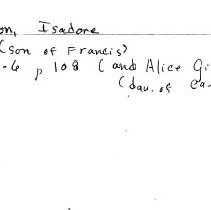 on, Isadore
(son of Francis)
-6 p 108 (and Alice Gi
(dau. of Ca